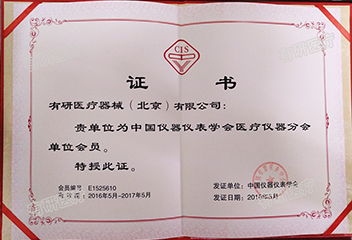 CIS
证 书
有研医疗器械（北京）有限公司：
贵单位为中国仪器仪表学会医疗仪器分会
单位会员。
特授此证。
会员编号 E1525610
有效期：2016年5月-2017年5月
发证单位：中国仪器仪表学会
发证日期：2016年5月